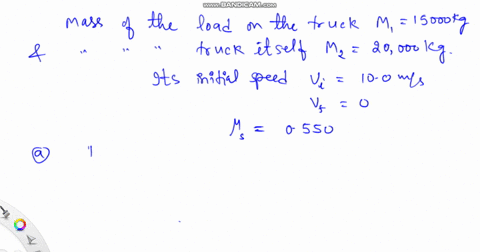 WWW.BANDICAM.COM
Mass of the load on the truck M₁ = 15000 kg
& " " " truck itself M₂ = 20,000 kg.
Its initial speed Vᵢ = 10.0 m/s
V_f = 0
μₛ = 0.550
ⓐ